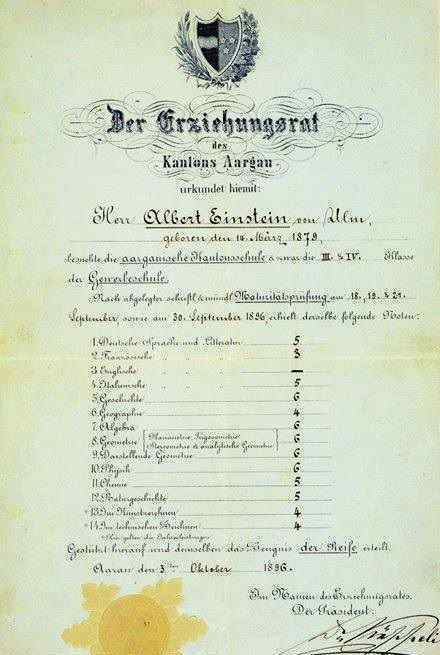 Der Erziehungsrat
des
Kantons Aargau
urkundet hiemit:
Herr Albert Einstein von Ulm,
geboren den 14. März 1879,
besuchte die aargauische Kantonsschule & zwar die III. & IV. Klasse
der Gewerbeschule.
Nach abgelegter schriftl. & mündl. Maturitätsprüfung am 18., 19. & 21.
September, sowie am 30. September 1896, erhielt derselbe folgende Noten:
1. Deutsche Sprache und Litteratur 5
2. Französische " " " 3
3. Englische " " " —
4. Italienische " " " 5
5. Geschichte 6
6. Geographie 4
7. Algebra 6
8. Geometrie [Planimetrie, Trigonometrie, Stereometrie & analytische Geometrie] 6
9. Darstellende Geometrie 6
10. Physik 6
11. Chemie 5
12. Naturgeschichte 5
* 13. Im Kunstzeichnen 4
* 14. Im technischen Zeichnen 4
* Hier gelten die Jahresleistungen.
Gestützt hierauf wird demselben das Zeugnis der Reife erteilt.
Aarau den 3ten Oktober 1896.
Im Namen des Erziehungsrates,
Der Präsident: